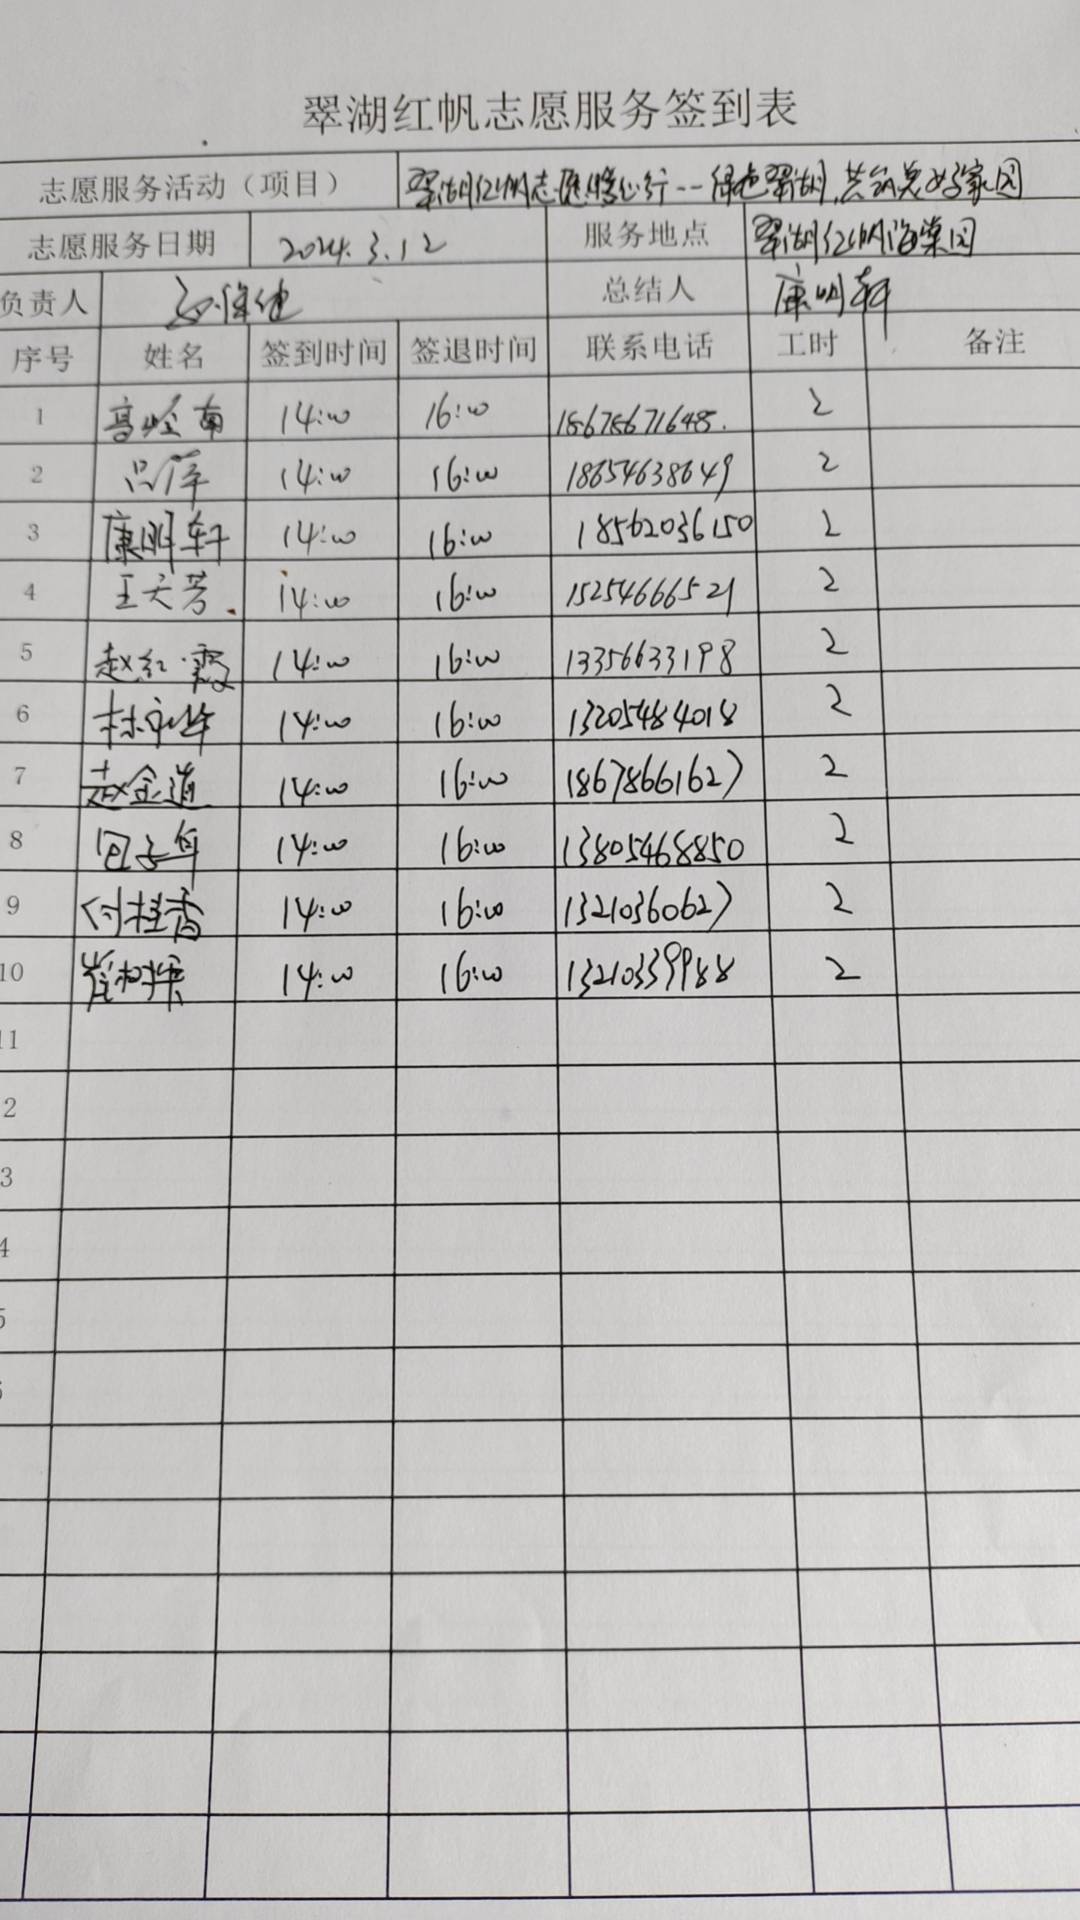 翠湖红帆志愿服务签到表
志愿服务活动（项目） 翠湖红帆志愿暖心行--绿色翠湖,共筑美好家园
志愿服务日期 2024.3.12 服务地点 翠湖红帆海棠园
负责人 总结人 康明轩
序号 姓名 签到时间 签退时间 联系电话 工时 备注
1 高岭南 14:00 16:00 2
2 吕泽 14:00 16:00 18654638649 2
3 康明轩 14:00 16:00 18562036150 2
4 王天芳 14:00 16:00 15254666521 2
5 赵红霞 14:00 16:00 13356633198 2
6 14:00 16:00 13205484018 2
7 赵金道 14:00 16:00 18678661627 2
8 14:00 16:00 13805468850 2
9 付桂香 14:00 16:00 13210360627 2
10 14:00 16:00 13210339988 2
11
2
3
4
5
6